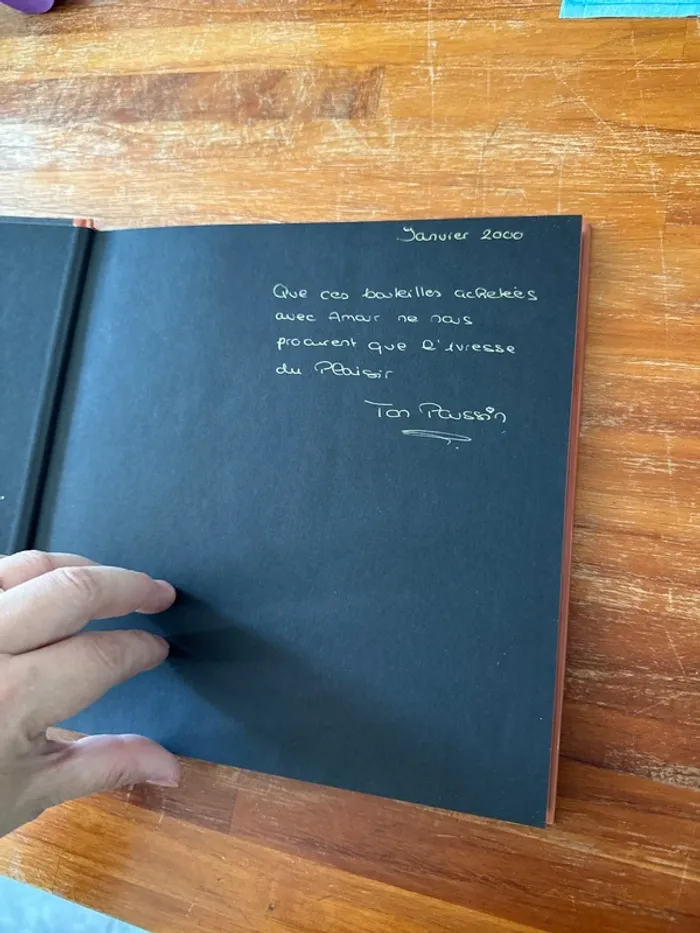 Janvier 2000
Que ces bouteilles achetées
avec Amour ne nous
procurent que l'ivresse
du Plaisir
Ton Poussin